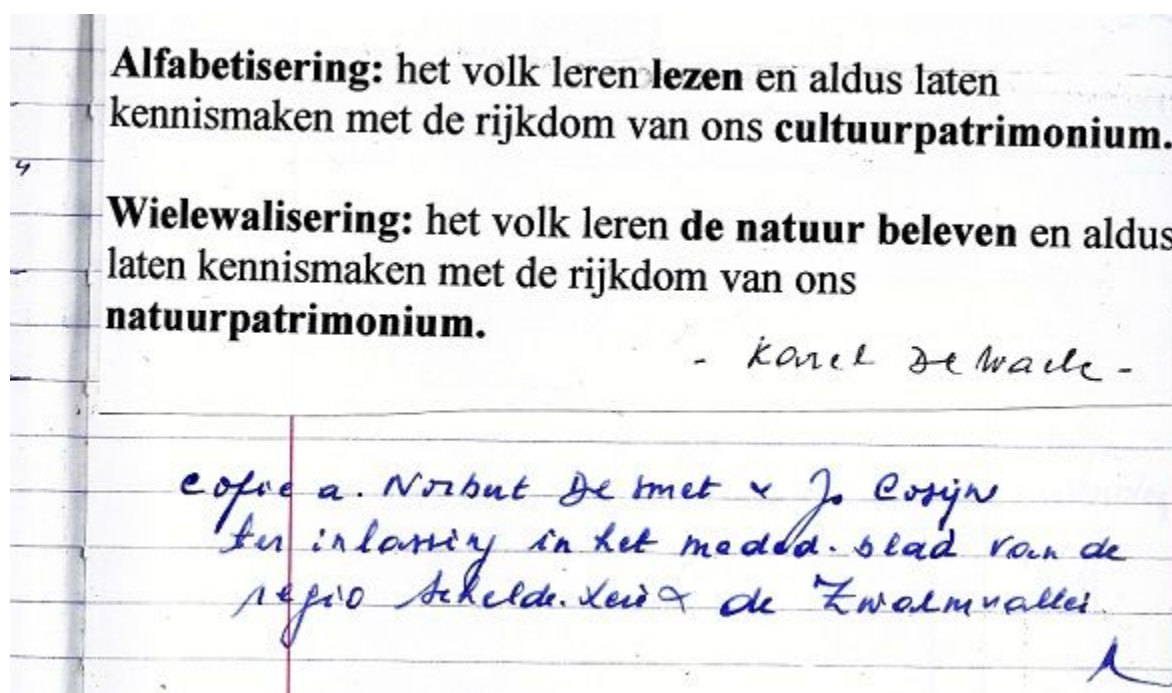 Alfabetisering: het volk leren lezen en aldus laten
kennismaken met de rijkdom van ons cultuurpatrimonium.
Wielewalisering: het volk leren de natuur beleven en aldus
laten kennismaken met de rijkdom van ons
natuurpatrimonium.
- Karel De Waele -
copie a. Norbert De Smet & Jo Cosijn
ter inlassing in het meded. blad van de
regio Schelde-Leie & de Zwalmvallei.